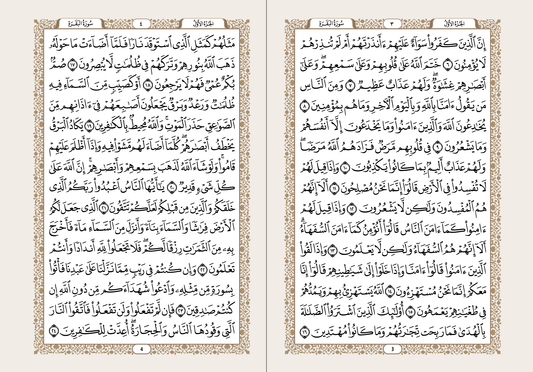 الجزء الأول
٣
سورة البقرة
إِنَّ ٱلَّذِينَ كَفَرُوا۟ سَوَآءٌ عَلَيْهِمْ ءَأَنذَرْتَهُمْ أَمْ لَمْ تُنذِرْهُمْ
لَا يُؤْمِنُونَ ٦ خَتَمَ ٱللَّهُ عَلَىٰ قُلُوبِهِمْ وَعَلَىٰ سَمْعِهِمْ ۖ وَعَلَىٰٓ
أَبْصَٰرِهِمْ غِشَٰوَةٌ ۖ وَلَهُمْ عَذَابٌ عَظِيمٌ ٧ وَمِنَ ٱلنَّاسِ
مَن يَقُولُ ءَامَنَّا بِٱللَّهِ وَبِٱلْيَوْمِ ٱلْءَاخِرِ وَمَا هُم بِمُؤْمِنِينَ ٨
يُخَٰدِعُونَ ٱللَّهَ وَٱلَّذِينَ ءَامَنُوا۟ وَمَا يَخْدَعُونَ إِلَّآ أَنفُسَهُمْ
وَمَا يَشْعُرُونَ ٩ فِى قُلُوبِهِم مَّرَضٌ فَزَادَهُمُ ٱللَّهُ مَرَضًا ۖ
وَلَهُمْ عَذَابٌ أَلِيمٌۢ بِمَا كَانُوا۟ يَكْذِبُونَ ١٠ وَإِذَا قِيلَ لَهُمْ
لَا تُفْسِدُوا۟ فِى ٱلْأَرْضِ قَالُوٓا۟ إِنَّمَا نَحْنُ مُصْلِحُونَ ١١ أَلَآ إِنَّهُمْ
هُمُ ٱلْمُفْسِدُونَ وَلَٰكِن لَّا يَشْعُرُونَ ١٢ وَإِذَا قِيلَ لَهُمْ
ءَامِنُوا۟ كَمَآ ءَامَنَ ٱلنَّاسُ قَالُوٓا۟ أَنُؤْمِنُ كَمَآ ءَامَنَ ٱلسُّفَهَآءُ ۗ
أَلَآ إِنَّهُمْ هُمُ ٱلسُّفَهَآءُ وَلَٰكِن لَّا يَعْلَمُونَ ١٣ وَإِذَا لَقُوا۟
ٱلَّذِينَ ءَامَنُوا۟ قَالُوٓا۟ ءَامَنَّا وَإِذَا خَلَوْا۟ إِلَىٰ شَيَٰطِينِهِمْ قَالُوٓا۟ إِنَّا
مَعَكُمْ إِنَّمَا نَحْنُ مُسْتَهْزِءُونَ ١٤ ٱللَّهُ يَسْتَهْزِئُ بِهِمْ وَيَمُدُّهُمْ
فِى طُغْيَٰنِهِمْ يَعْمَهُونَ ١٥ أُو۟لَٰٓئِكَ ٱلَّذِينَ ٱشْتَرَوُا۟ ٱلضَّلَٰلَةَ
بِٱلْهُدَىٰ فَمَا رَبِحَت تِّجَٰرَتُهُمْ وَمَا كَانُوا۟ مُهْتَدِينَ ١٦
3
الجزء الأول
٤
سورة البقرة
مَثَلُهُمْ كَمَثَلِ ٱلَّذِى ٱسْتَوْقَدَ نَارًا فَلَمَّآ أَضَآءَتْ مَا حَوْلَهُۥ
ذَهَبَ ٱللَّهُ بِنُورِهِمْ وَتَرَكَهُمْ فِى ظُلُمَٰتٍ لَّا يُبْصِرُونَ ١٧ صُمٌّۢ
بُكْمٌ عُمْىٌ فَهُمْ لَا يَرْجِعُونَ ١٨ أَوْ كَصَيِّبٍ مِّنَ ٱلسَّمَآءِ فِيهِ
ظُلُمَٰتٌ وَرَعْدٌ وَبَرْقٌ يَجْعَلُونَ أَصَٰبِعَهُمْ فِىٓ ءَاذَانِهِم مِّنَ
ٱلصَّوَٰعِقِ حَذَرَ ٱلْمَوْتِ ۚ وَٱللَّهُ مُحِيطٌۢ بِٱلْكَٰفِرِينَ ١٩ يَكَادُ ٱلْبَرْقُ
يَخْطَفُ أَبْصَٰرَهُمْ ۖ كُلَّمَآ أَضَآءَ لَهُم مَّشَوْا۟ فِيهِ وَإِذَآ أَظْلَمَ عَلَيْهِمْ
قَامُوا۟ ۚ وَلَوْ شَآءَ ٱللَّهُ لَذَهَبَ بِسَمْعِهِمْ وَأَبْصَٰرِهِمْ ۚ إِنَّ ٱللَّهَ عَلَىٰ
كُلِّ شَىْءٍ قَدِيرٌ ٢٠ يَٰٓأَيُّهَا ٱلنَّاسُ ٱعْبُدُوا۟ رَبَّكُمُ ٱلَّذِى
خَلَقَكُمْ وَٱلَّذِينَ مِن قَبْلِكُمْ لَعَلَّكُمْ تَتَّقُونَ ٢١ ٱلَّذِى جَعَلَ لَكُمُ
ٱلْأَرْضَ فِرَٰشًا وَٱلسَّمَآءَ بِنَآءً وَأَنزَلَ مِنَ ٱلسَّمَآءِ مَآءً فَأَخْرَجَ
بِهِۦ مِنَ ٱلثَّمَرَٰتِ رِزْقًا لَّكُمْ ۖ فَلَا تَجْعَلُوا۟ لِلَّهِ أَندَادًا وَأَنتُمْ
تَعْلَمُونَ ٢٢ وَإِن كُنتُمْ فِى رَيْبٍ مِّمَّا نَزَّلْنَا عَلَىٰ عَبْدِنَا فَأْتُوا۟
بِسُورَةٍ مِّن مِّثْلِهِۦ وَٱدْعُوا۟ شُهَدَآءَكُم مِّن دُونِ ٱللَّهِ إِن
كُنتُمْ صَٰدِقِينَ ٢٣ فَإِن لَّمْ تَفْعَلُوا۟ وَلَن تَفْعَلُوا۟ فَٱتَّقُوا۟ ٱلنَّارَ
ٱلَّتِى وَقُودُهَا ٱلنَّاسُ وَٱلْحِجَارَةُ ۖ أُعِدَّتْ لِلْكَٰفِرِينَ ٢٤
4